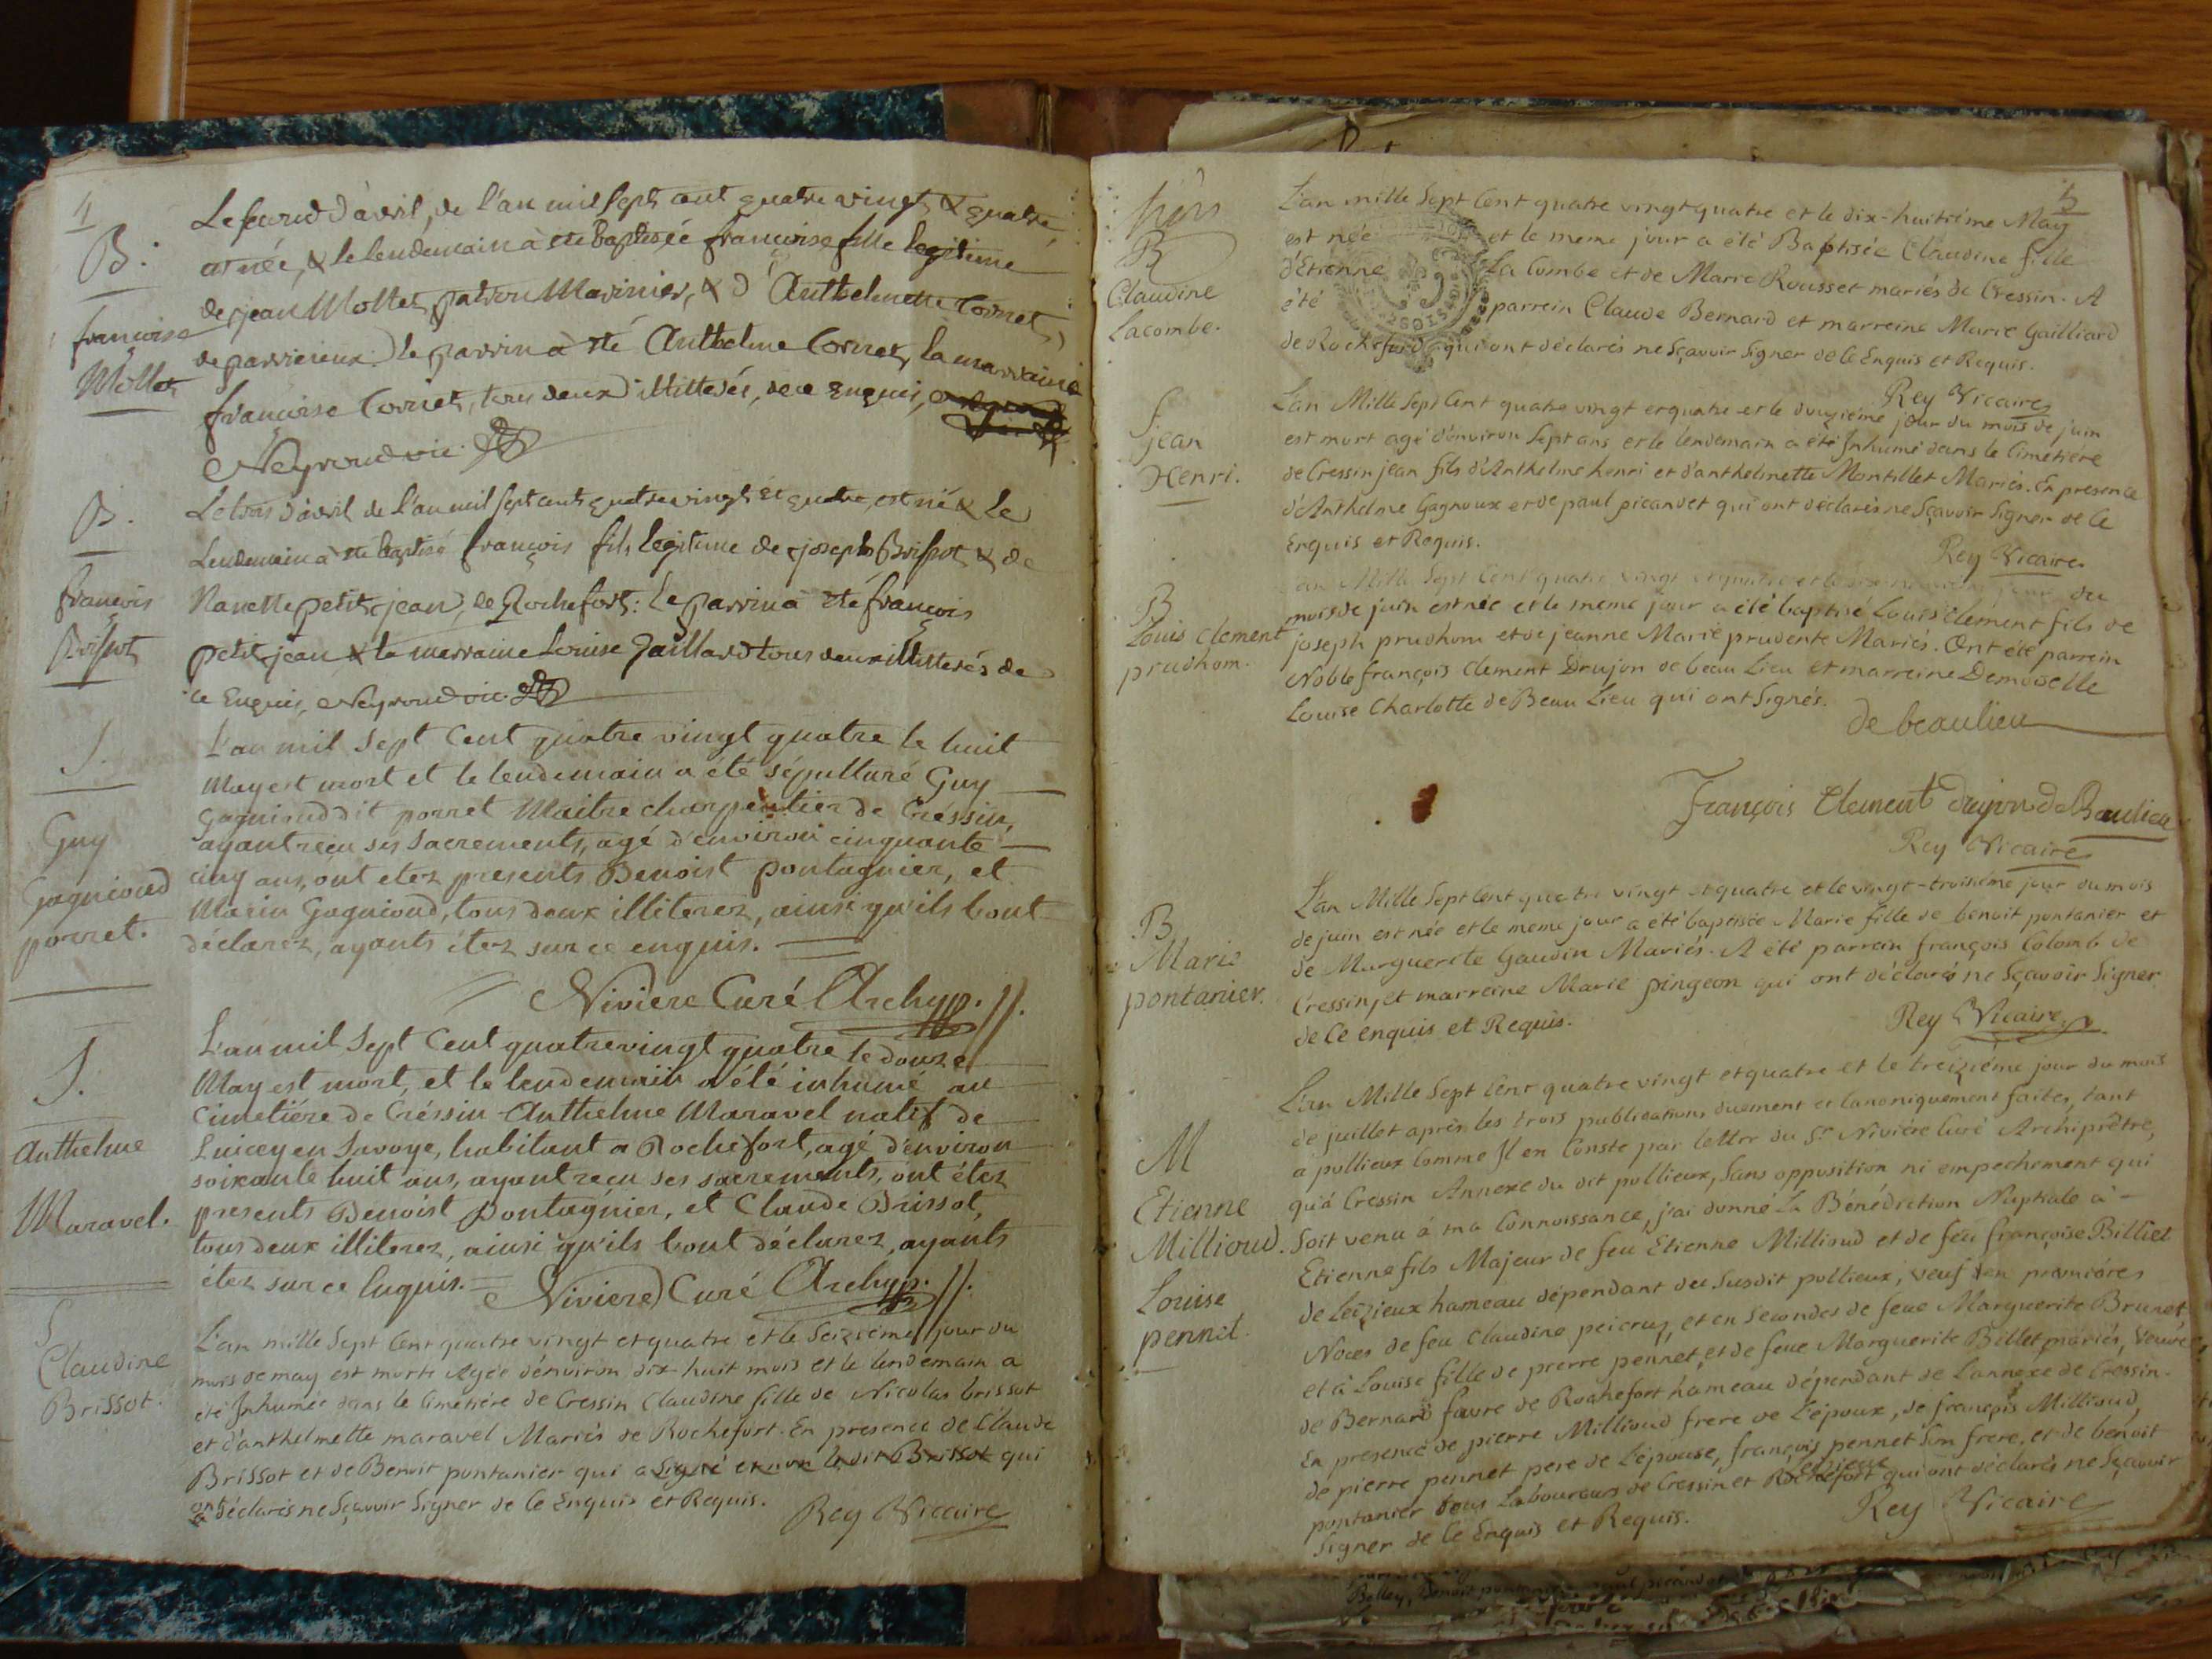 4
B.
françoise
Mollet
Le second d'avril, de l'an mil sept cent quatre vingt & quatre,
est née, & le lendemain à été baptisée françoise fille legitime
de jean Mollet, patron Marinier, & d'Anthelmette Cornet,
de parrieieux: le parrin à été Anthelme Cornet, la marraine
françoise Cornet, tous deux illitterés, de ce Enquis,
Neyroud vic.
B.
françois
Brissot
Le trois d'avril de l'an mil sept cent quatre vingt & quatre, est né & le
Lendemain à été baptisé françois fils legitime de joseph Brissot & de
Nanette petit jean, de Rochefort: Le parrin à été françois
petit jean & la marraine Louise Gaillard tous deux illitterés de
ce Enquis, Neyroud vic.
S.
Guy
Gagnioud
porret.
L'an mil Sept Cent quatre vingt quatre le huit
May est mort et le lendemain a été sépulturé Guy
Gagnioud dit porret Maitre charpentier de Créssin,
ayant reçu ses Sacrements, agé d'environ cinquante
cinq ans, ont étez presents Benoist pontagnier, et
Marin Gagnioud, tous deux illiterez, ainsi qu'ils l'ont
déclarez, ayants étez sur ce enquis.
Niviere Curé Archyp.
S.
Anthelme
Maravel.
L'an mil Sept Cent quatre vingt quatre le douze
May est mort, et le lendemain a été inhumé au
Cimetiére de Créssin Anthelme Maravel natif de
Luicey en Savoye, habitant a Rochefort, agé d'environ
soixante huit ans, ayant reçu ses sacrements, ont étez
presents Benoist Pontagnier, et Claude Brissot,
tous deux illiterez, ainsi qu'ils l'ont déclarez, ayants
étez sur ce Enquis. Niviere Curé Archyp.
S
Claudine
Brissot.
L'an mille Sept Cent quatre vingt et quatre et le Seizième jour du
mois de may est morte Agée d'environ dix-huit mois et le lendemain a
été Inhumée dans le Cimetière de Cressin Claudine fille de Nicolas brissot
et d'anthelmette maravel Mariés de Rochefort. En presence de Claude
Brissot et de Benoit pontanier qui a signé et non le dit Brissot qui
ont déclarés ne Sçavoir Signer de Ce Enquis et Requis.
Rey Vicaire
5
B
Claudine
Lacombe.
L'an mille Sept Cent quatre vingt quatre et le dix-huitiéme May
est née et le meme jour a été Baptisée Claudine fille
d'Etienne La Combe et de Marie Rousset mariés de Cressin. A
été parrein Claude Bernard et marreine Marie Gailliard
de Rochefort qui ont déclarés ne Sçavoir Signer de Ce Enquis et Requis.
Rey Vicaire
S
jean
Henri.
L'an Mille Sept Cent quatre vingt et quatre et le douziéme jour du mois de juin
est mort agé d'environ Sept ans et le lendemain a été Inhumé dans le Cimetière
de Cressin jean fils d'Anthelme henri et d'anthelmette Montillet Mariés. En presence
d'Anthelme Gagnoux et de paul picandet qui ont déclarés ne Sçavoir Signer de Ce
Enquis et Requis.
Rey Vicaire.
B
Louis Clement
prudhom.
L'an Mille Sept Cent quatre vingt et quatre et le jour du
mois de juin est née et le meme jour a été baptisé Louis Clément fils de
joseph prudhom et de jeanne Marie prudente Mariés. Ont été parrein
Noble françois Clement Drujon de beau Lieu et marreine Demoiselle
Louise Charlotte de Beau Lieu qui ont Signés.
de beaulieu
François Clement drujon de Beaulieu
Rey Vicaire
B
Marie
pontanier.
L'an Mille Sept Cent quatre vingt et quatre et le vingt-troisième jour du mois
de juin est née et le meme jour a été baptisée Marie fille de benoit pontanier et
de Marguerite Gaudin Mariés. A été parrein françois Colomb de
Cressin, et marreine Marie pingeon qui ont déclarés ne Sçavoir Signer
de Ce enquis et Requis.
Rey Vicaire
M
Etienne
Millioud.
Louise
pennet.
L'an Mille Sept Cent quatre vingt et quatre et le treiziéme jour du mois
de juillet après les trois publications duement et canoniquement faites, tant
a pollieux Comme Il en Conste par lettre du Sr Niviére Curé Archiprêtre,
qu'à Cressin Annexe du dit pollieux, Sans opposition ni empechement qui
Soit venu à ma Connoissance, j'ai donné La Bénédiction Nuptiale à
Etienne fils Majeur de feu Etienne Millioud et de feu françoise Billiet
de Leizieux hameau dépendant du Susdit pollieux, veuf en premiéres
Noces de feu Claudine peicruz, et en Secondes de feue Marguerite Brunet
et à Louise fille de pierre pennet, et de feue Marguerite Billet mariés, veuve
de Bernard favre de Rochefort hameau dépendant de L'annexe de Cressin.
En presence de pierre Millioud frere de L'époux, de françois Millioud,
de pierre pennet pere de L'épouse, françois pennet Son frere, et de benoit
pontanier tous Laboureurs de Cressin et Rochefort qui ont déclarés ne Sçavoir
Signer de Ce Enquis et Requis.
Rey Vicaire